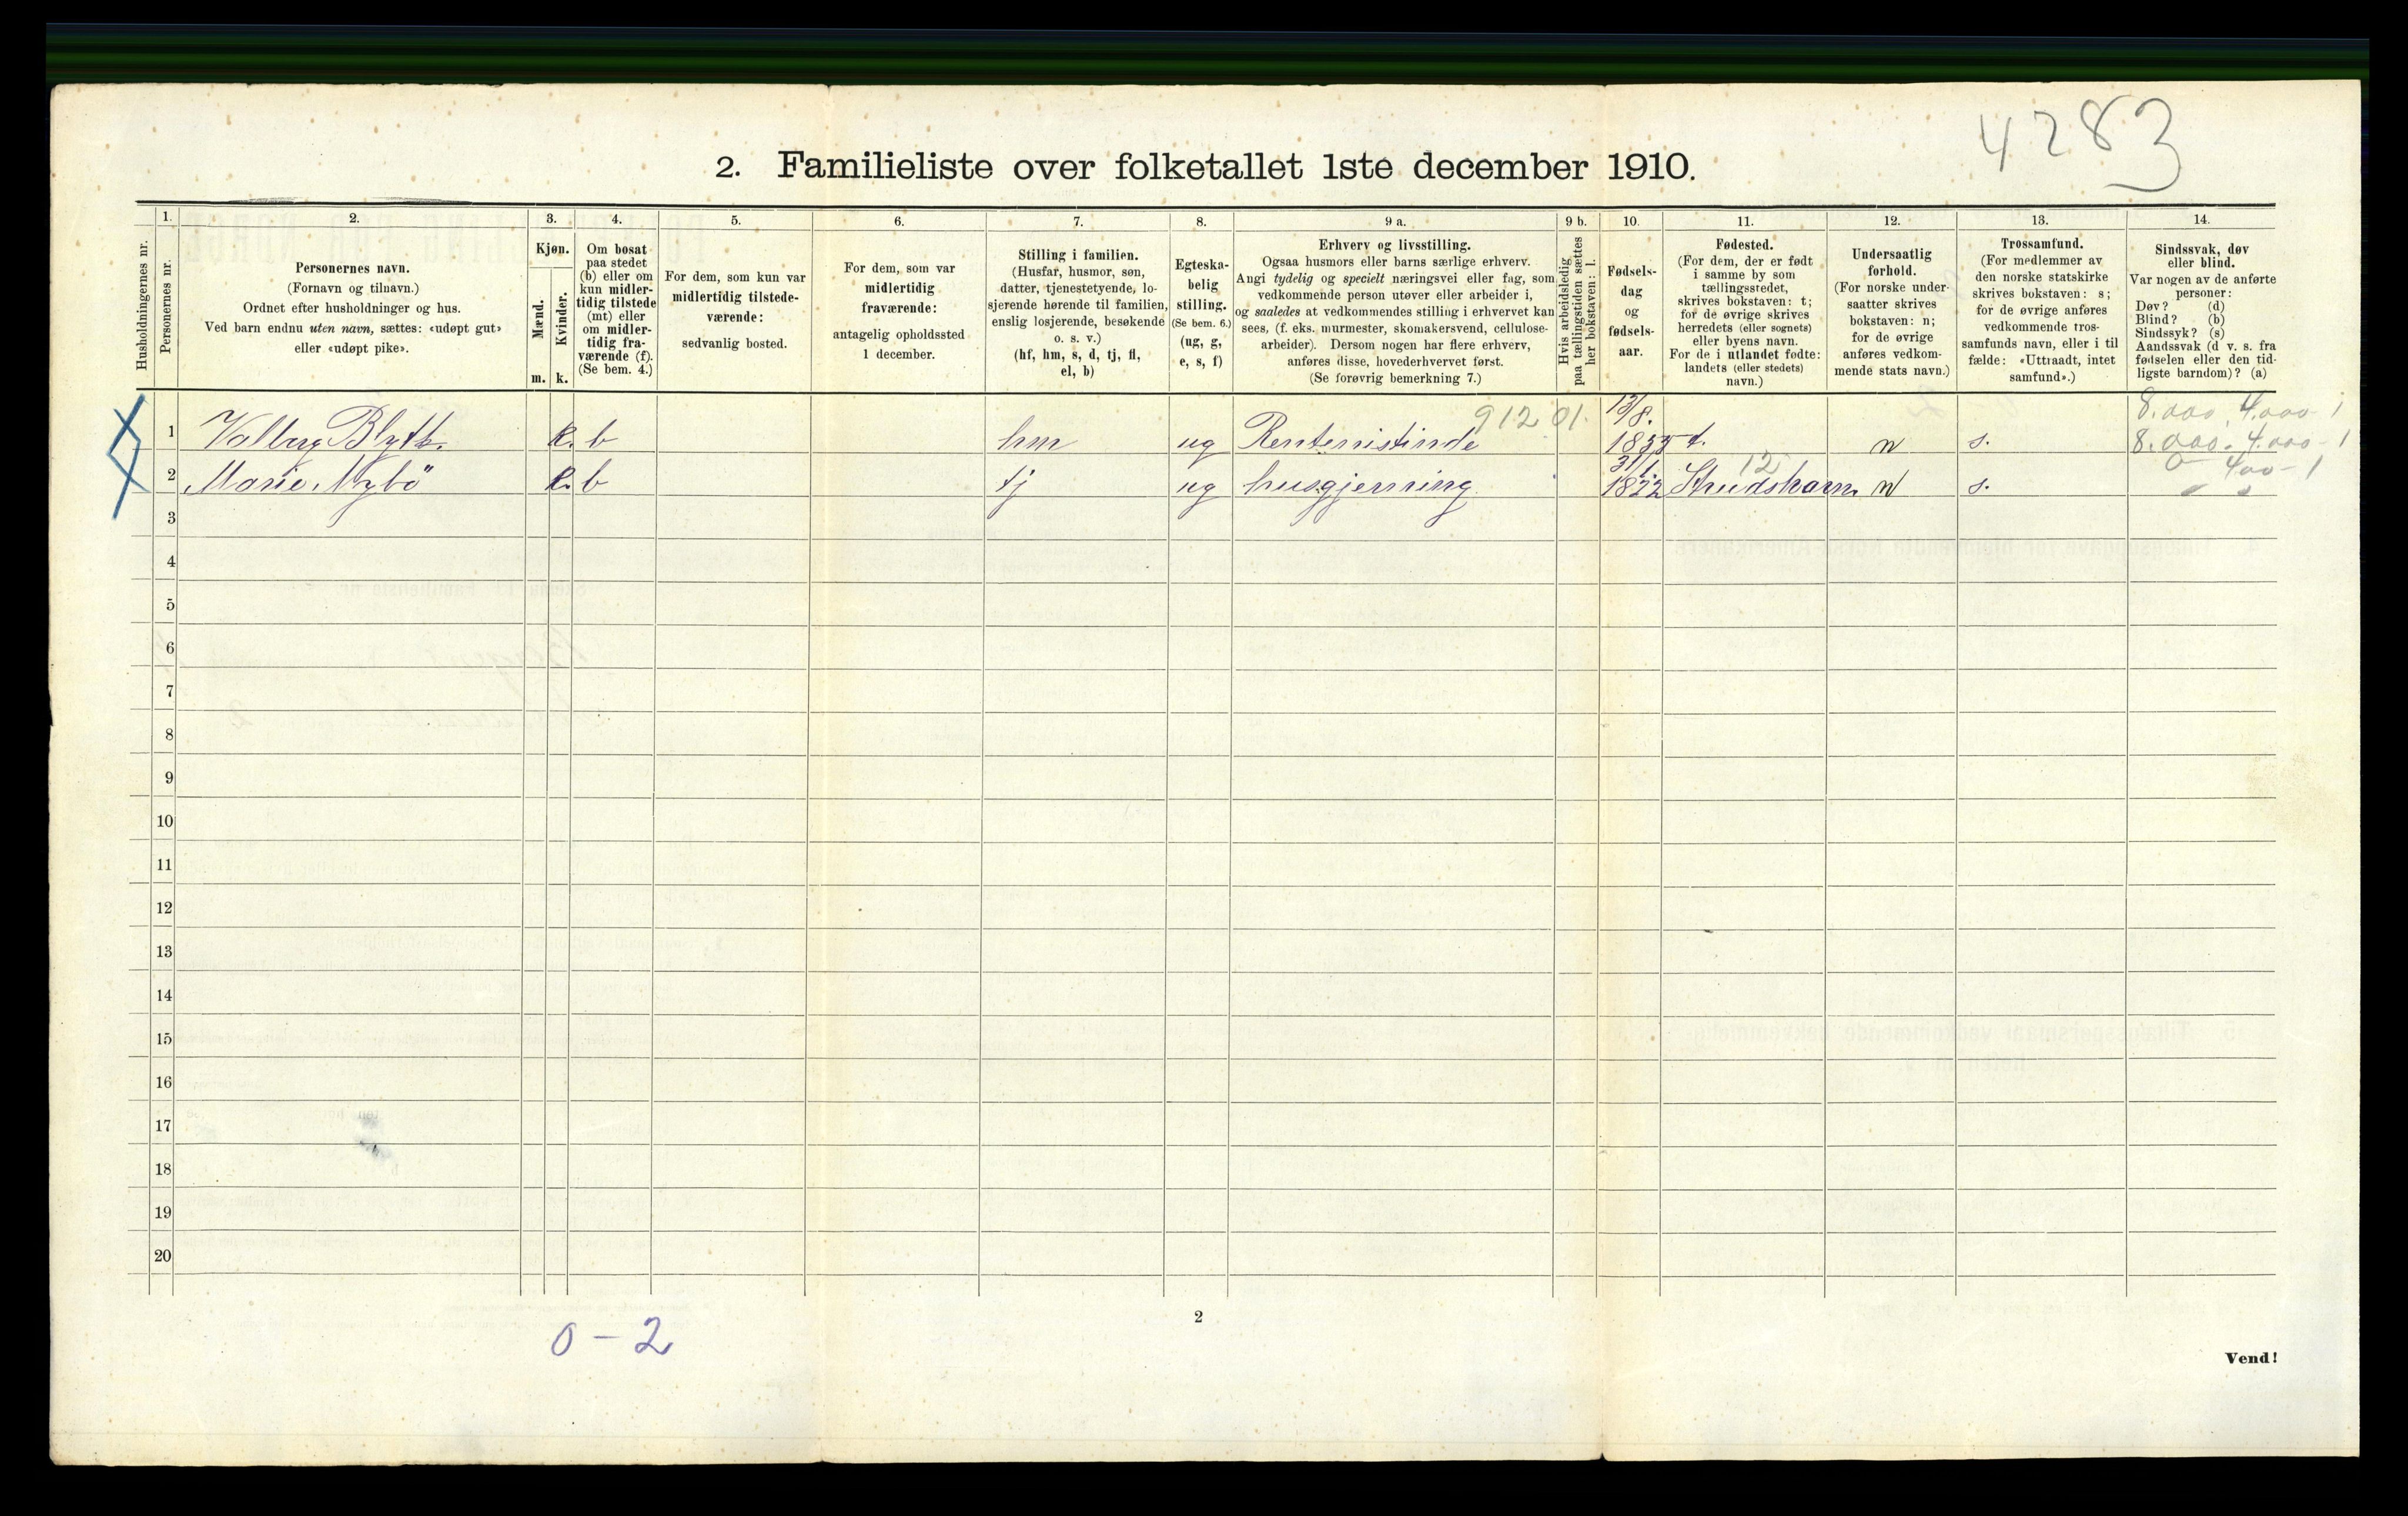 4283
2. Familieliste over folketallet 1ste december 1910.
Husholdningernes nr.
1.
Personernes nr.
2.
Personernes navn.
(Fornavn og tilnavn.)
Ordnet efter husholdninger og hus.
Ved barn endnu uten navn, sættes: «udøpt gut»
eller «udøpt pike».
3.
Kjøn.
Mænd.
Kvinder.
m. k.
4.
Om bosat
paa stedet
(b) eller om
kun midler-
tidig tilstede
(mt) eller
om midler-
tidig fra-
værende (f).
(Se bem. 4.)
5.
For dem, som kun var
midlertidig tilstede-
værende:
sedvanlig bosted.
6.
For dem, som var
midlertidig
fraværende:
antagelig opholdssted
1 december.
7.
Stilling i familien.
(Husfar, husmor, søn,
datter, tjenestetyende, lo-
sjerende hørende til familien,
enslig losjerende, besøkende
o. s. v.)
(hf, hm, s, d, tj, fl,
el, b)
8.
Egteska-
belig
stilling.
(Se bem. 6.)
(ug, g,
e, s, f)
9 a.
Erhverv og livsstilling.
Ogsaa husmors eller barns særlige erhverv.
Angi tydelig og specielt næringsvei eller fag, som
vedkommende person utøver eller arbeider i,
og saaledes at vedkommendes stilling i erhvervet kan
sees, (f. eks. murmester, skomakersvend, cellulose-
arbeider). Dersom nogen har flere erhverv,
anføres disse, hovederhvervet først.
(Se forøvrig bemerkning 7.)
9 b.
Hvis arbeidsledig
paa tællingstiden sættes
her bokstaven: l.
10.
Fødsels-
dag
og
fødsels-
aar.
11.
Fødested.
(For dem, der er født
i samme by som
tællingsstedet,
skrives bokstaven: t;
for de øvrige skrives
herredets (eller sognets)
eller byens navn.
For de i utlandet fødte:
landets (eller stedets)
navn.)
12.
Undersaatlig
forhold.
(For norske under-
saatter skrives
bokstaven: n;
for de øvrige
anføres vedkom-
mende stats navn.)
13.
Trossamfund.
(For medlemmer av
den norske statskirke
skrives bokstaven: s;
for de øvrige anføres
vedkommende tros-
samfunds navn, eller i til
fælde: «Uttraadt, intet
samfund».)
14.
Sindssvak, døv
eller blind.
Var nogen av de anførte
personer:
Døv? (d)
Blind? (b)
Sindssyk? (s)
Aandssvak (d v. s. fra
fødselen eller den tid-
ligste barndom)? (a)
912 01. 13/8. 8.000. 4.000-1
1 Valborg Blytt. k. b hm ug Rentenistinde t. n s. 8.000. 4.000-1
31/1. 12 0 400-1
2 Marie Nybö k. b tj ug husgjerning n s.
3
4
5
6
7
8
9
10
11
12
13
14
15
16
17
18
19
20
2
0-2
Vend!